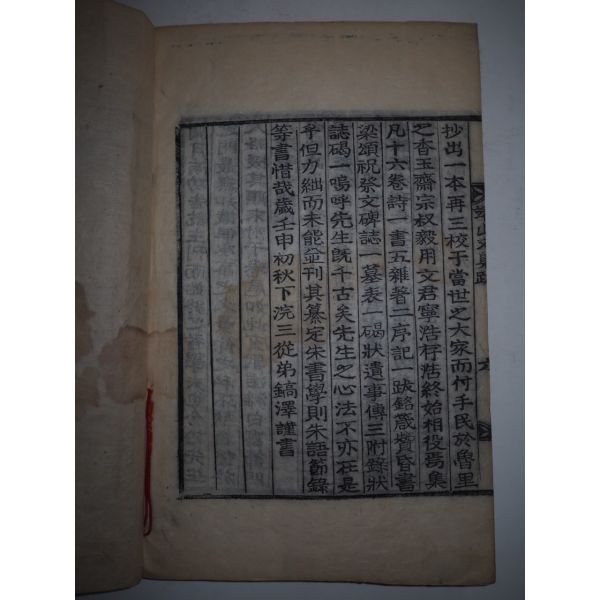 抄出一本再三校于當世之大家而付手民於魯里
之杏玉齋宗叔毅用文君寧浩桴浩終始相役焉集
凡十六卷詩一書五雜著二序記一跋銘箴贊昏書
梁頌祝祭文碑誌一墓表一碣狀遺事傳三附錄狀
誌碣一嗚呼先生旣千古矣先生之心法不亦在是
乎但力絀而未能並刊其纂定朱書學則朱語節錄
等書惜哉歲壬申初秋下浣三從弟鎬澤謹書